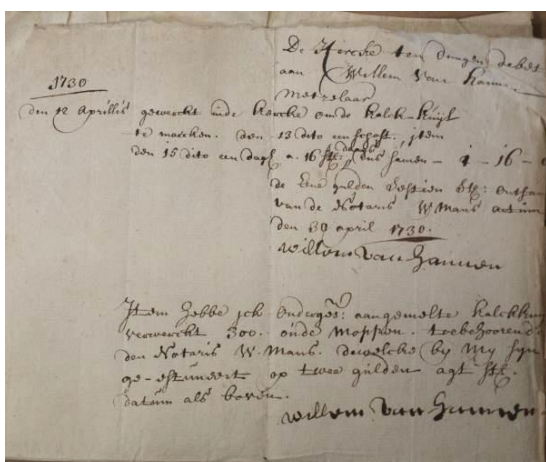 De Kercke ten dungen debet
aan Willem Van Hannen
Metzelaar
1730
den 12 Aprillis gewerckt inde Kercke om de Kalck-Kuijl
te maecken. den 13 dito een schoft. jtem
den 15 dito een dagh a. 16 st: daags dus samen - 1 - 16 -
de Ene gulden Sestien st: ontfan
van de Notaris W Mans actum
den 30 april 1730.
Willem Van Hannen
Jtem hebbe jck onderges: aangemelte Kalckkuijl
verwerckt 300. oude Moppen. toebehoorende
den Notaris W. Mans. dewelcke by My syn
ge-estimeert op twee gulden agt st:.
datum als boven.
Willem Van Hannen